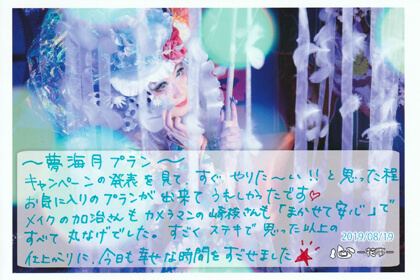 〜夢海月プラン〜
キャンペーンの発表を見て、すぐやりた〜い!!と思った程
お気に入りのプランが出来てうれしかったです♡
メイクの加治さんもカメラマンの崎様さんも「まかせて安心」で
すべて丸なげでした。すごくステキで思った以上の
仕上がりに、今日も幸せな時間をすごせました★
2019/08/19
心